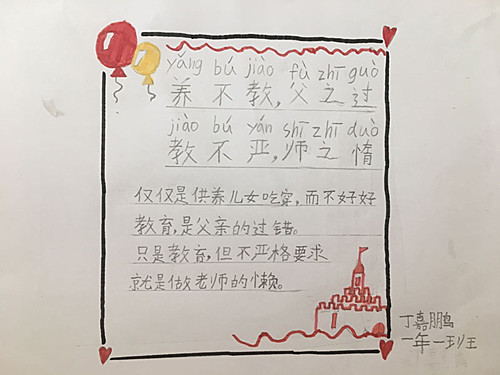 yǎng bú jiào fù zhī guò
养不教,父之过
jiào bú yán shī zhī duò
教不严,师之惰
仅仅是供养儿女吃穿,而不好好
教育,是父亲的过错。
只是教育,但不严格要求
就是做老师的懒。
丁嘉鹏
一年一班